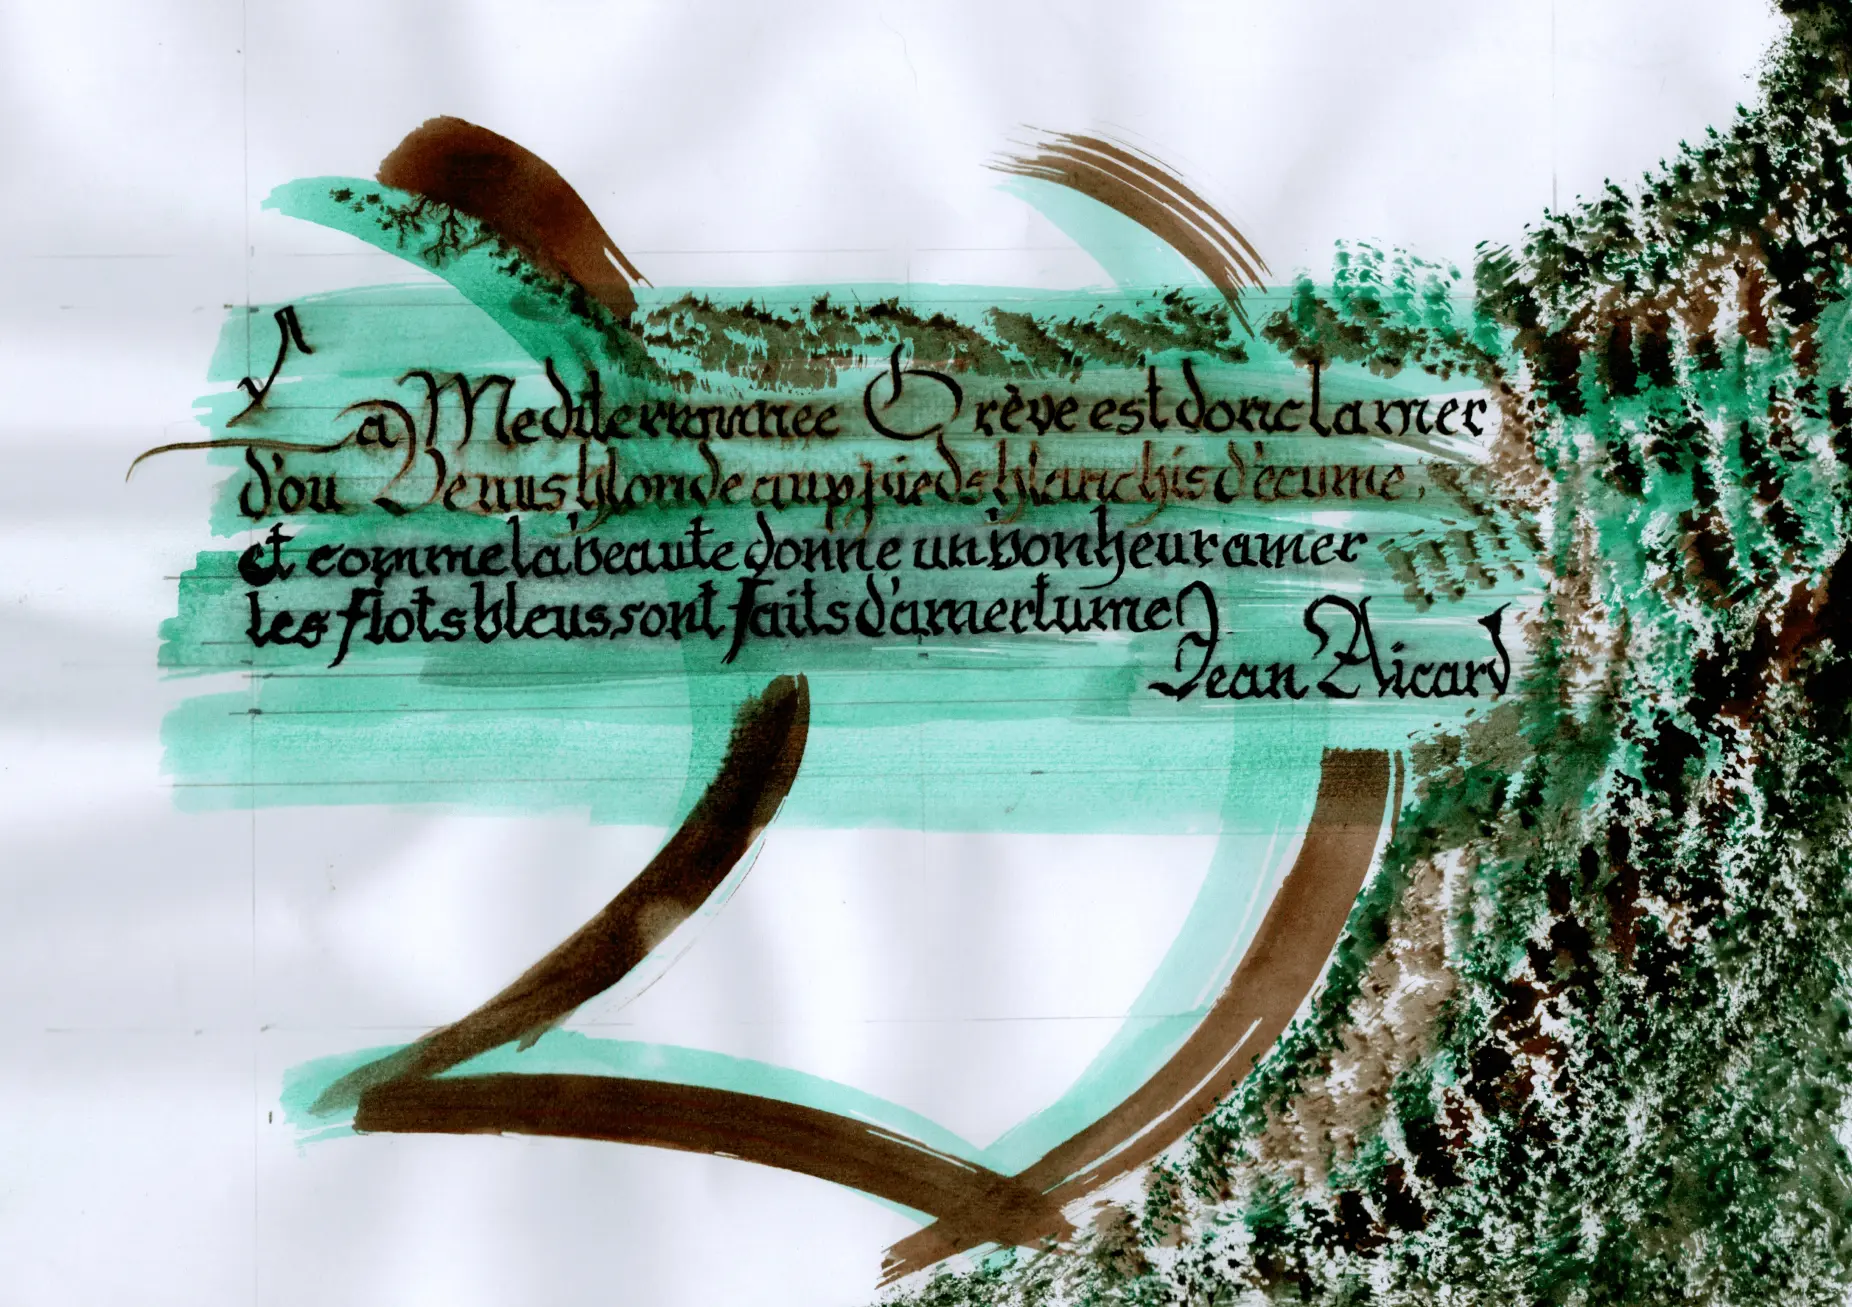 La Mediterrannee O rève est donc la mer
d'ou Venus blonde aux pieds blanchis d'ecume,
et comme la beaute donne un bonheur amer
les flots bleus sont faits d'amertume
Jean Aicard